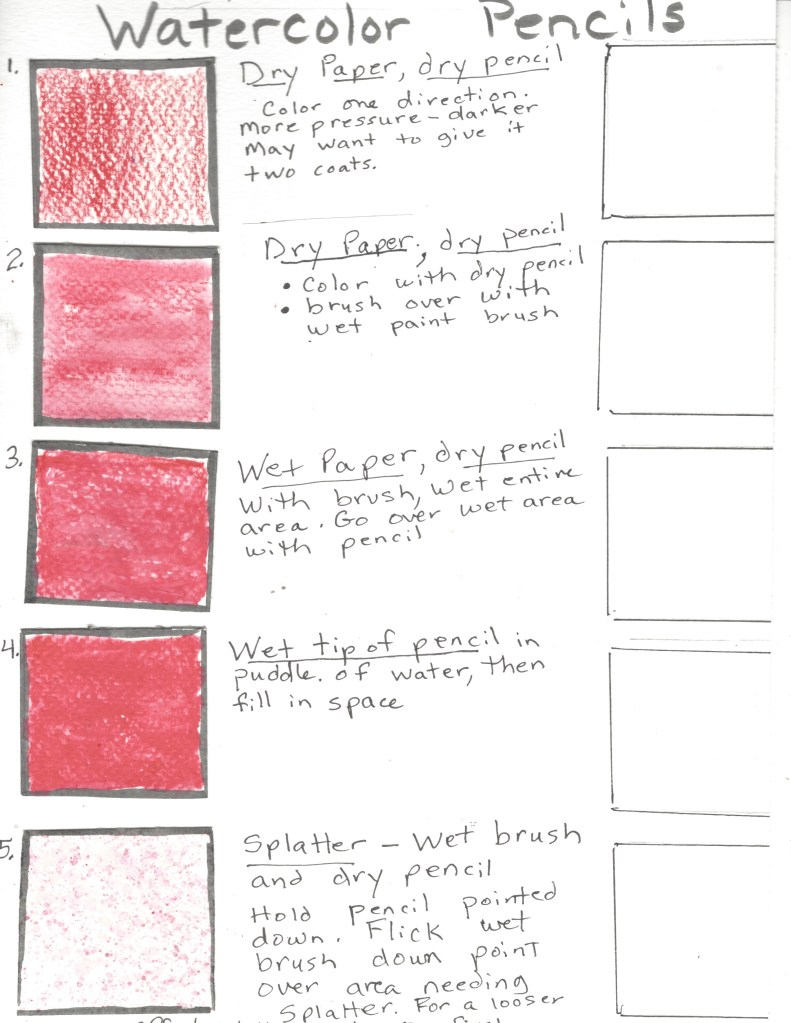 Watercolor Pencils
1.
Dry Paper, dry pencil
Color one direction.
more pressure - darker
May want to give it
two coats.
2.
Dry Paper, dry pencil
• Color with dry pencil
• brush over with
wet paint brush
3.
Wet Paper, dry pencil
With brush, wet entire
area. Go over wet area
with pencil
4.
Wet tip of pencil in
puddle. of water, then
fill in space
5.
Splatter - Wet brush
and dry pencil
Hold pencil pointed
down. Flick wet
brush down point
over area needing
Splatter. For a looser